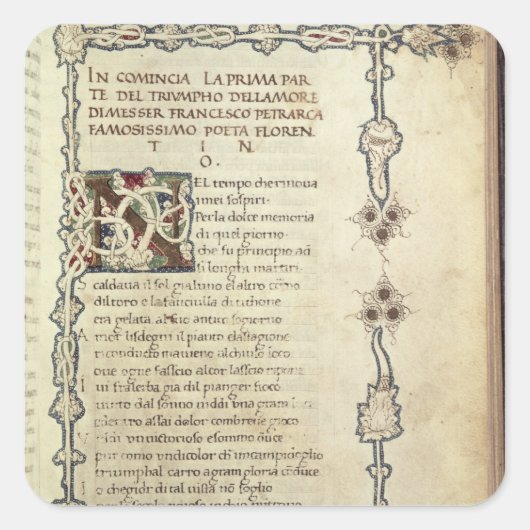 IN COMINCIA LA PRIMA PAR
TE DEL TRIVMPHO DELLAMORE
DI MESSER FRANCESCO PETRARCA
FAMOSISSIMO POETA FLOREN
TIN
O.
NEL tempo che rinoua
i miei sospiri
Per la dolce memoria
di quel giorno
che fu principio ad
si longhi martiri
Scaldaua il sol gia luno el altro corno
di toro e la fanciulla di tithone
era gelata al suo antico sogiorno
Amor li sdegni il pianto e la stagione
ricondusto mauieno al chiuso loco
oue ogne fasscio al cor lasscio ripone
Iui fra lerba gia dil pianger fioco
uinto dal sonno uiddi una gram luce
dentro assai dolor con breue gioco
Vidi un uictorioso e sommo duce
pur como un di color ch in campidoglio
triumphal carro a gram gloria conduce
Io che gioir di tal uista non soglio
per lo secolo noioso